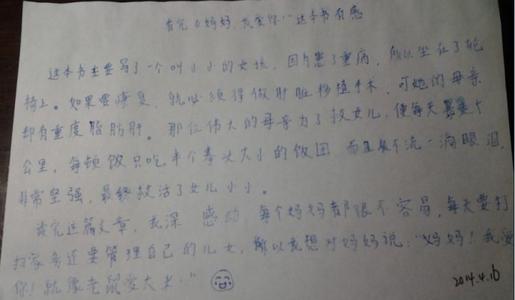 看完《妈妈,我爱你》这本书有感
这本书主要写了一个叫小小的女孩,因为患了重病,所以坐在了轮
椅上。如果要康复,就必须得做肝脏移植手术,可她的母亲
却有重度脂肪肝。那位伟大的母亲为了救女儿,便每天暴走十
公里,每顿饭只吃半个拳头大小的饭团,而且从不流一滴眼泪,
非常坚强,最终救活了女儿小小。
看完这篇文章,我深 感动,每个妈妈都很不容易,每天要打
扫家务还要管理自己的儿女,所以我想对妈妈说:"妈妈!我爱
你!就像老鼠爱大米!"
2014.4.16